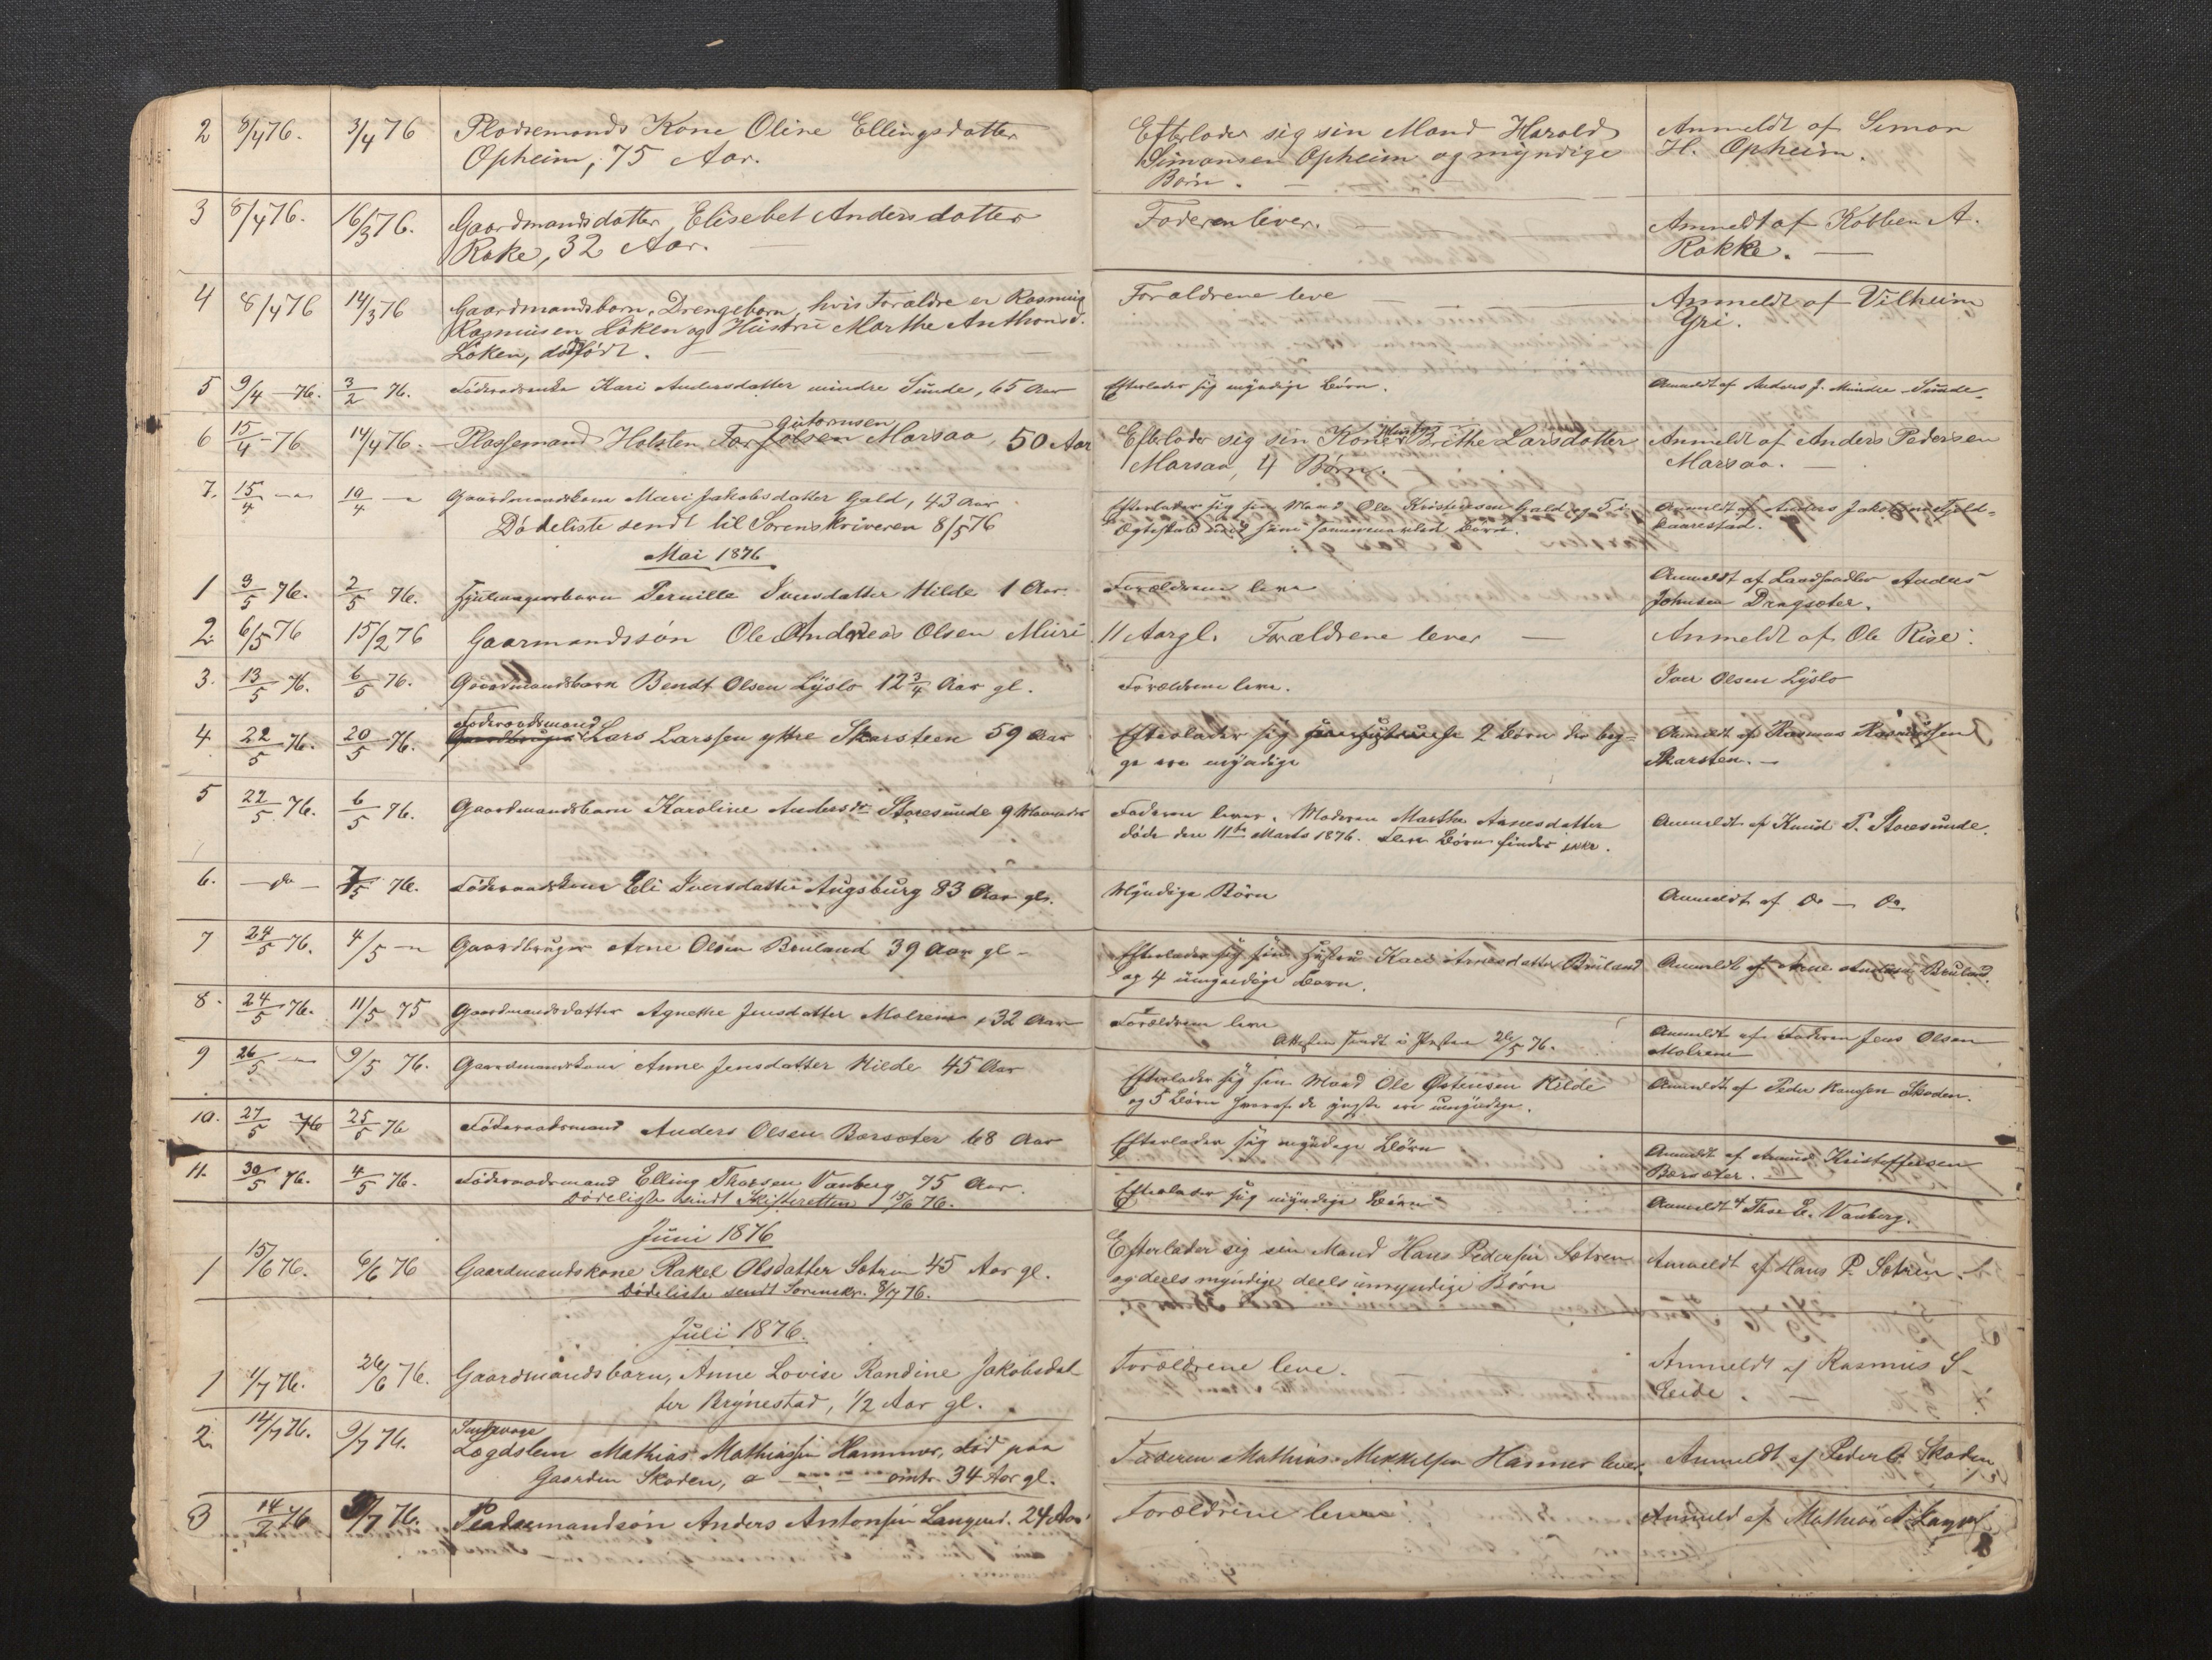 2 8/4 76. 3/4 76 Pladsemands Kone Oline Ellingsdatter
Opheim, 75 Aar.
Efterlader sig sin Mand Harald
Simonsen Opheim og myndige
Børn.
Anmeldt af Simon
H. Opheim.
3 8/4 76. 16/3 76. Gaardmandsdatter, Elisebet Andersdatter
Rake, 32 Aar.
Faderen lever.
Anmeldt af Kobben A.
Rakke.
4 8/4 76 14/3 76 Gaardmandsbarn, Drengebarn, hvis Forældre er Rasmus
Rasmusen Løken og Hustru Marthe Anthonsd.
Løken, dødfødt.
Forældrene leve
Anmeldt af Vilheim
Yri.
5 9/4 76. 3/2 76. Føderaadsenke Kari Andersdatter mindre Sunde, 65 Aar
Efterlader sig myndige Børn.
Anmeldt af Anders J. Mindre-Sunde.
Gutormsen
6 15/4 - 76 14/4 76. Plassemand Halsten Marsaa, 50 Aar
Efterlader sig sin Kone Brithe Larsdatter
Marsaa, 4 Børn.
Anmeldt af Anders Pedersen
Marsaa.
7. 15/4 10/4 Gaardmandskone Mari Jakobsdatter Gald, 43 Aar
Efterlader sig sin Mand Ole Kristensen Gald og 5 i
Ægteskab sammenavlede Børn.
Anmeldt af Anders Jakobsen
Dødeliste sendt til Sorenskriveren 8/5 76
Mai 1876
1 3/5 76. 2/5 76. Pernille Iversdatter Hilde 1 Aar.
Forældrene leve
Anmeldt af Landhandler Anders
Johnsen Dragsæter.
2. 6/5 76 15/2 76 Gaarmandssøn Ole Andreas Olsen Muri
11 Aar gl. Forældrene lever
Anmeldt af Ole Rise.
3. 13/5 76. 6/5 76. Gaardmandsbarn Bendt Olsen Lyslo 12 3/4 Aar gl.
Forældrene leve.
Iver Olsen Lyslo
Føderaadsmand
4 22/5 76. 20/5 76. Gaardbruger Lars Larssen yttre Skarsteen 59 Aar
Efterlader sig 2 Børn der beg-
ge ere myndige
Anmeldt af Rasmus Rasmussen
Skarsten.
5 22/5 76. 6/5 76. Gaardmandsbarn Karoline Andersdr Storesunde 9 Maaneder
Faderen lever. Moderen Marthe Arnesdatter
døde den 11te Marts 1876. Flere Børn findes ikke.
Anmeldt af Knud T. Storesunde.
6. - do - 7/5 76. Føderaadskone Eli Iversdatter Augsburg 83 Aar gl.
Myndige Børn
Anmeldt af Do - Do
7 24/5 76. 4/5 - Gaardbruger Arne Olsen Bruland 39 Aar gl -
Efterlader sig sin Hustru Kari Arnesdatter Bruland
og 4 umyndige Børn.
Anmeldt af Arne Bruland.
8. 24/5 76. 11/5 75 Gaardmandsdatter Agnethe Jensdatter Molrein, 32 Aar
Forældrene leve
26/5 76.
Anmeldt af Faderen Jens Olsen
Molrein
9 26/5 9/5 76. Gaardmandskone Anne Jensdatter Hilde 45 Aar
Efterlader sig sin Mand Ole Østensen Hilde
og 5 Børn hvoraf de yngste ere umyndige.
Anmeldt af Peder Skaden.
10. 27/5 76 25/5 76 Føderaadsmand Anders Olsen Barsæter 68 Aar
Efterlader sig myndige Børn
Anmeldt af Amund Kristoffersen
Barsæter.
11. 30/5 76. 4/5 76. Føderaadsmand Elling Tharsen Vanberg 75 Aar.
Efterlader sig myndige Børn
Anmeldt af Thor E. Vanberg.
Dødeliste sendt Skifteretten 15/6 76.
Juni 1876
1 15/6 76. 6/6 76 Gaardmandskone Rakel Olsdatter Sætren 45 Aar gl.
Efterlader sig sin Mand Hans Pedersen Sætren
og deels myndige deels umyndige Børn
Anmeldt af Hans P. Sætren.
Dødeliste sendt Sorenskr. 8/7 76.
Juli 1876.
1 1/7 76. 26/6 76. Gaardmandsbarn, Anne Lovise Randine Jakobsdat
ter Brynestad, 1/2 Aar gl.
Forældrene leve.
Anmeldt af Rasmus S.
Eide.
2. 14/7 76. 9/7 76. Lægdslem Mathias Mathiassen Hammer, død paa
Gaarden Skaden, omtr. 34 Aar gl.
Faderen Mathias Mikkelsen Hammer lever.
Anmeldt af Peder Skaden
3 14/7 76 9/7 76. Pladsemandsøn Anders Antonsen Langved. 24 Aar
Forældrene leve
Anmeldt af Mathias A. Langv